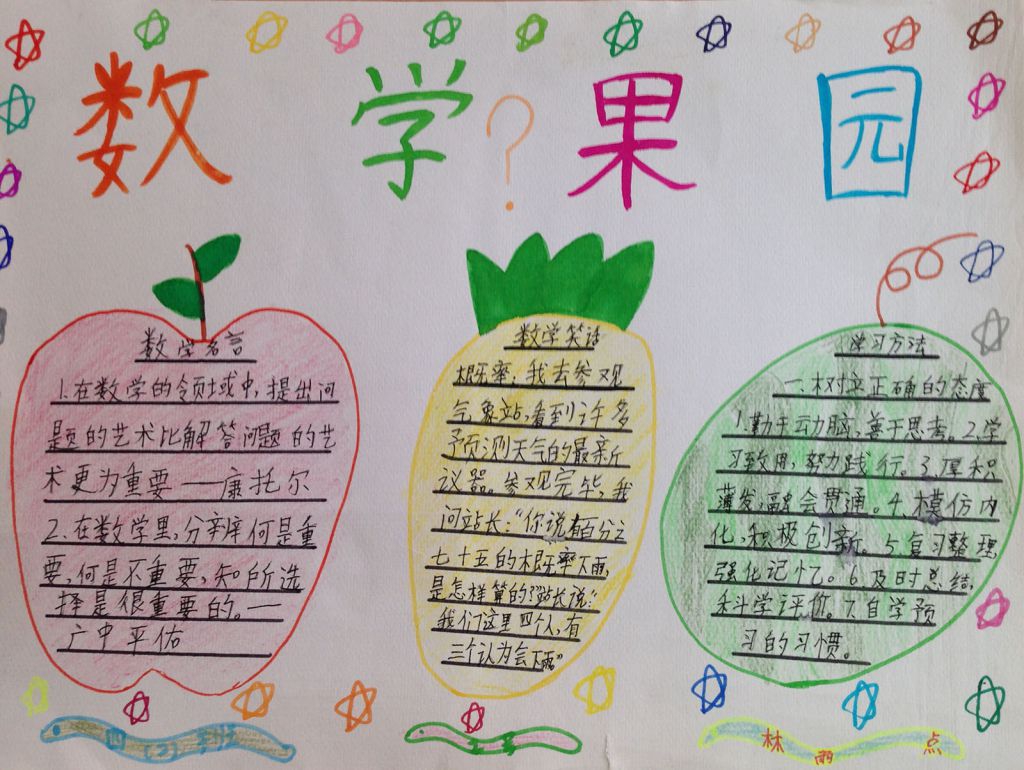 数学?果园
数学名言
1.在数学的领域中,提出问
题的艺术比解答问题的艺
术更为重要——康托尔
2.在数学里,分辨何是重
要,何是不重要,知所选
择是很重要的。——
广中平佑
数学笑话
概率:我去参观
气象站,看到许多
预测天气的最新
议器。参观完毕,我
问站长:“你说有百分之
七十五的概率下雨,
是怎样算的?”站长说:“
我们这里四个人,有
三个认为会下雨”
学习方法
一.树立正确的态度
1.勤于动脑,善于思考。2.学
习致用,努力践行。3.厚积
薄发,融会贯通。4.模仿内
化,积极创新。5.复习整理,
强化记忆。6.及时总结,
科学评价。7.自学预
习的习惯。
四(2)班
林雨点